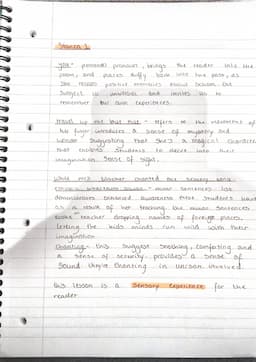 Stanza 1
"you" personal pronoun, brings the reader into the
poem, and places Duffy back into her past, as
she recalls positive memories about school. Our
subject is universal and invites us to
remember our own experiences.
travel up the blue Nile - refers to the movements of
his finger introduces a sense of mystery and
wonder suggesting that she's a magical character
that enables students to delve into their
imagination. Sense of sight.
while mrs tilescher chanted the scenery
minor sentences list
demonstrates enhanced awareness these students have
as a result of her teaching. the minor sentences
teacher dropping names of foreign places,
letting the kids minds run wild with their
imagination
Chanting - this suggest soothing, comforting and
a sense of security. provides a sense of
sound. they're chanting in unison. involved.
this lesson is a sensory experience for the
reader